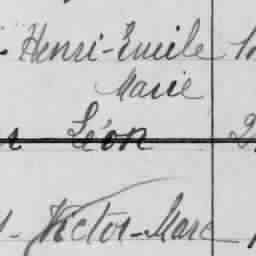 Henri-Emile
Marie
Léon
Victor-Marc